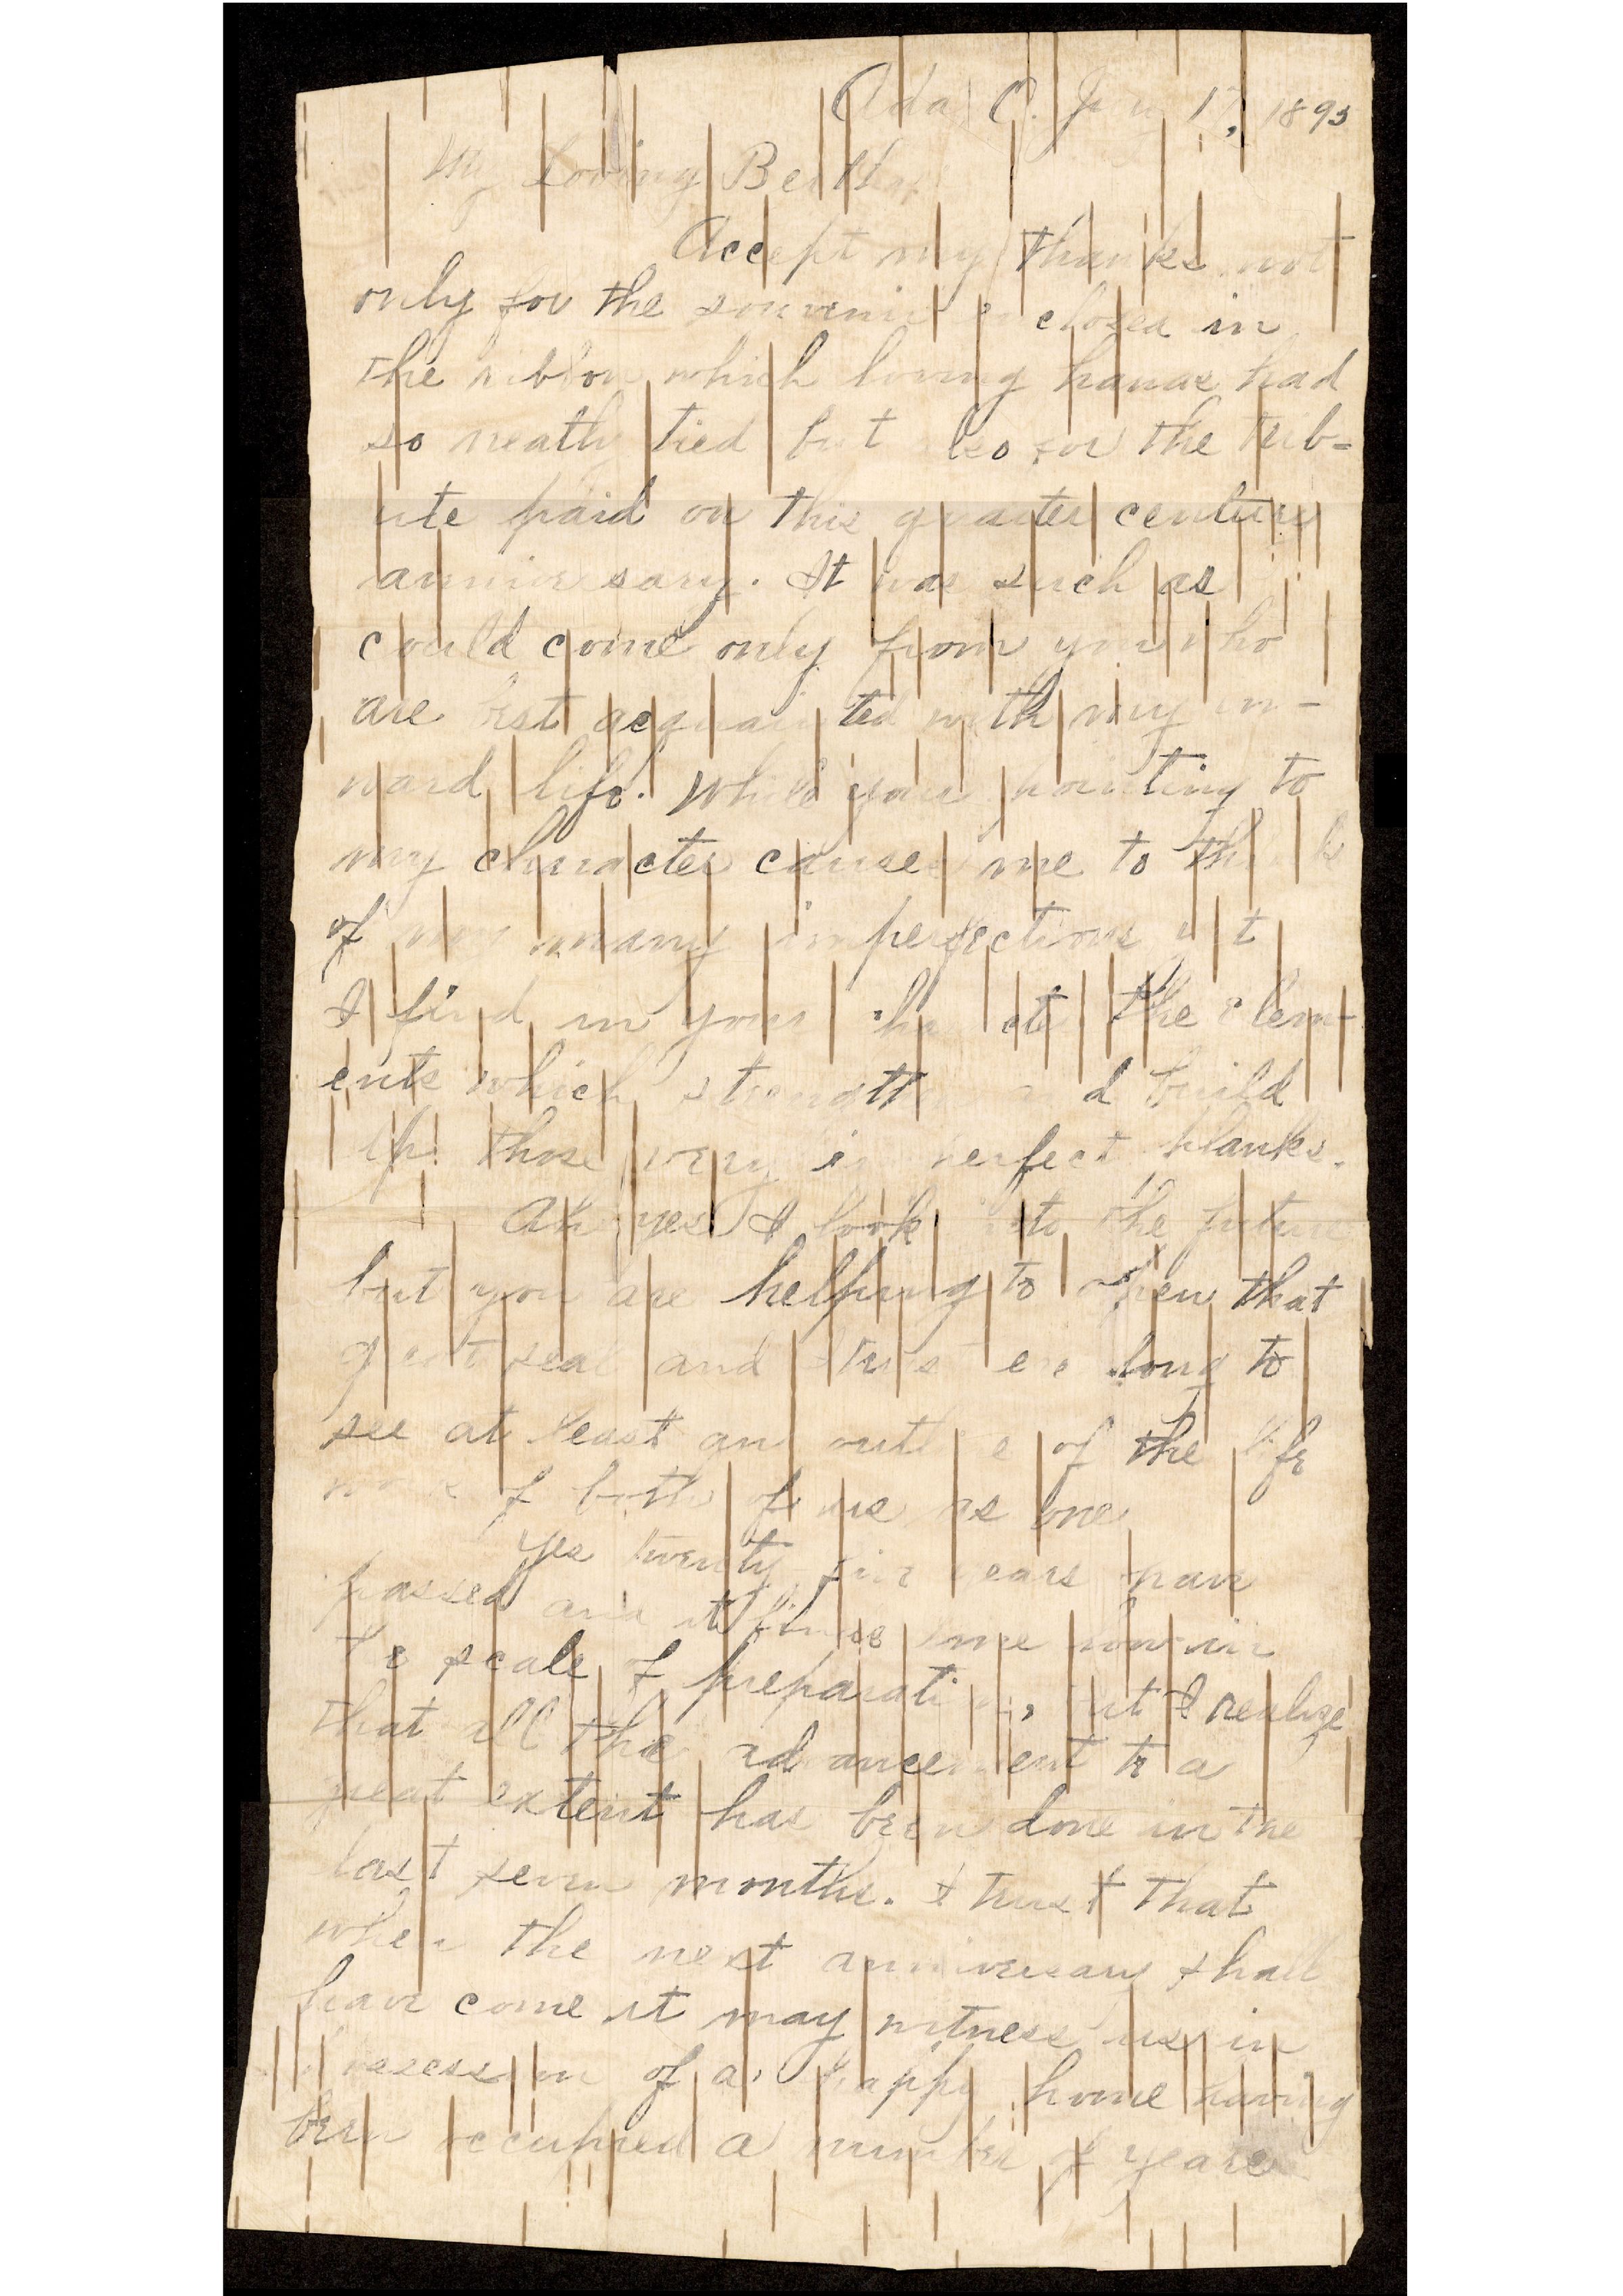 Ada, O. 1895
My Loving Bertha:
Accept my thanks not
only for the souvenir enclosed in
the ribbon which loving hands had
so neatly tied but also for the trib=
ute paid on this quarter century
anniversary. It was such as
could come only from you who
are best acquainted with my in-
ward life. While your pointing to
my character causes me to think
of my many imperfections yet
I find in your character the elem-
ents which strengthen and build
up those very imperfect planks.
Ah yes I look into the future
but you are helping to open that
great seal and I trust ere long to
see at least an outline of the life
work of both of us as one.
Yes twenty five years have
passed and it finds me low in
the scale of preparation, but I realize
that all the advancement to a
great extent has been done in the
last seven months. I trust that
when the next anniversary shall
have come it may witness us in
possession of a happy home having
been occupied a number of years